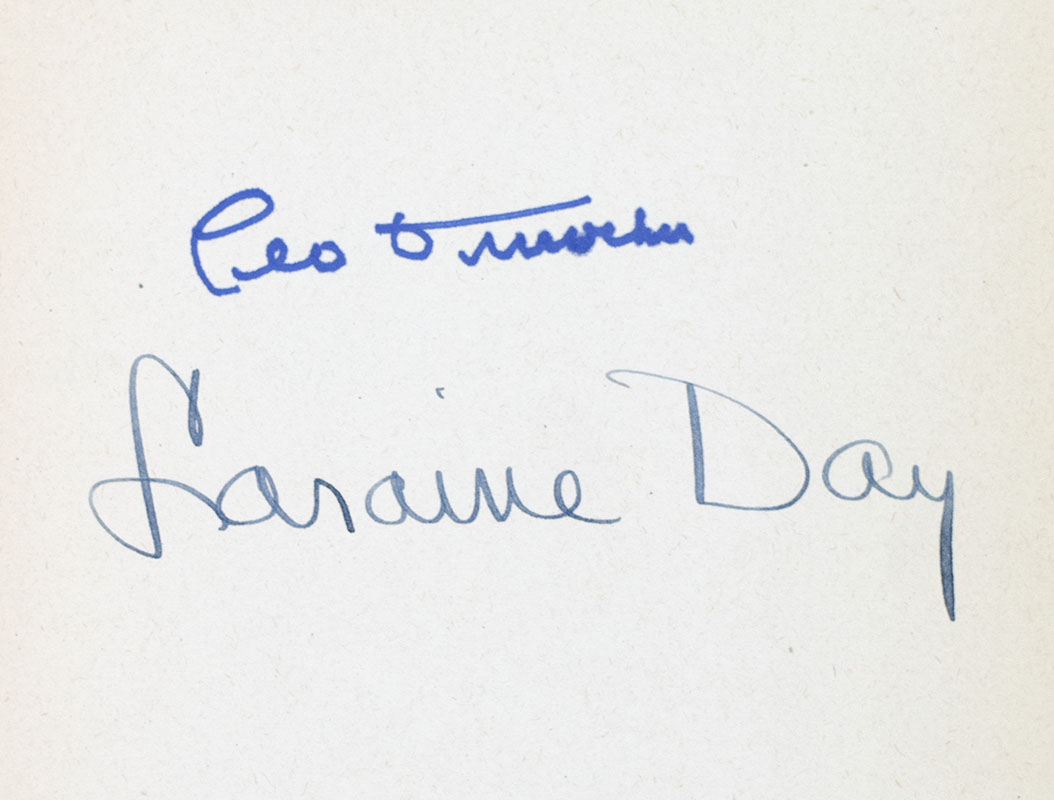 Leo Durocher
Laraine Day